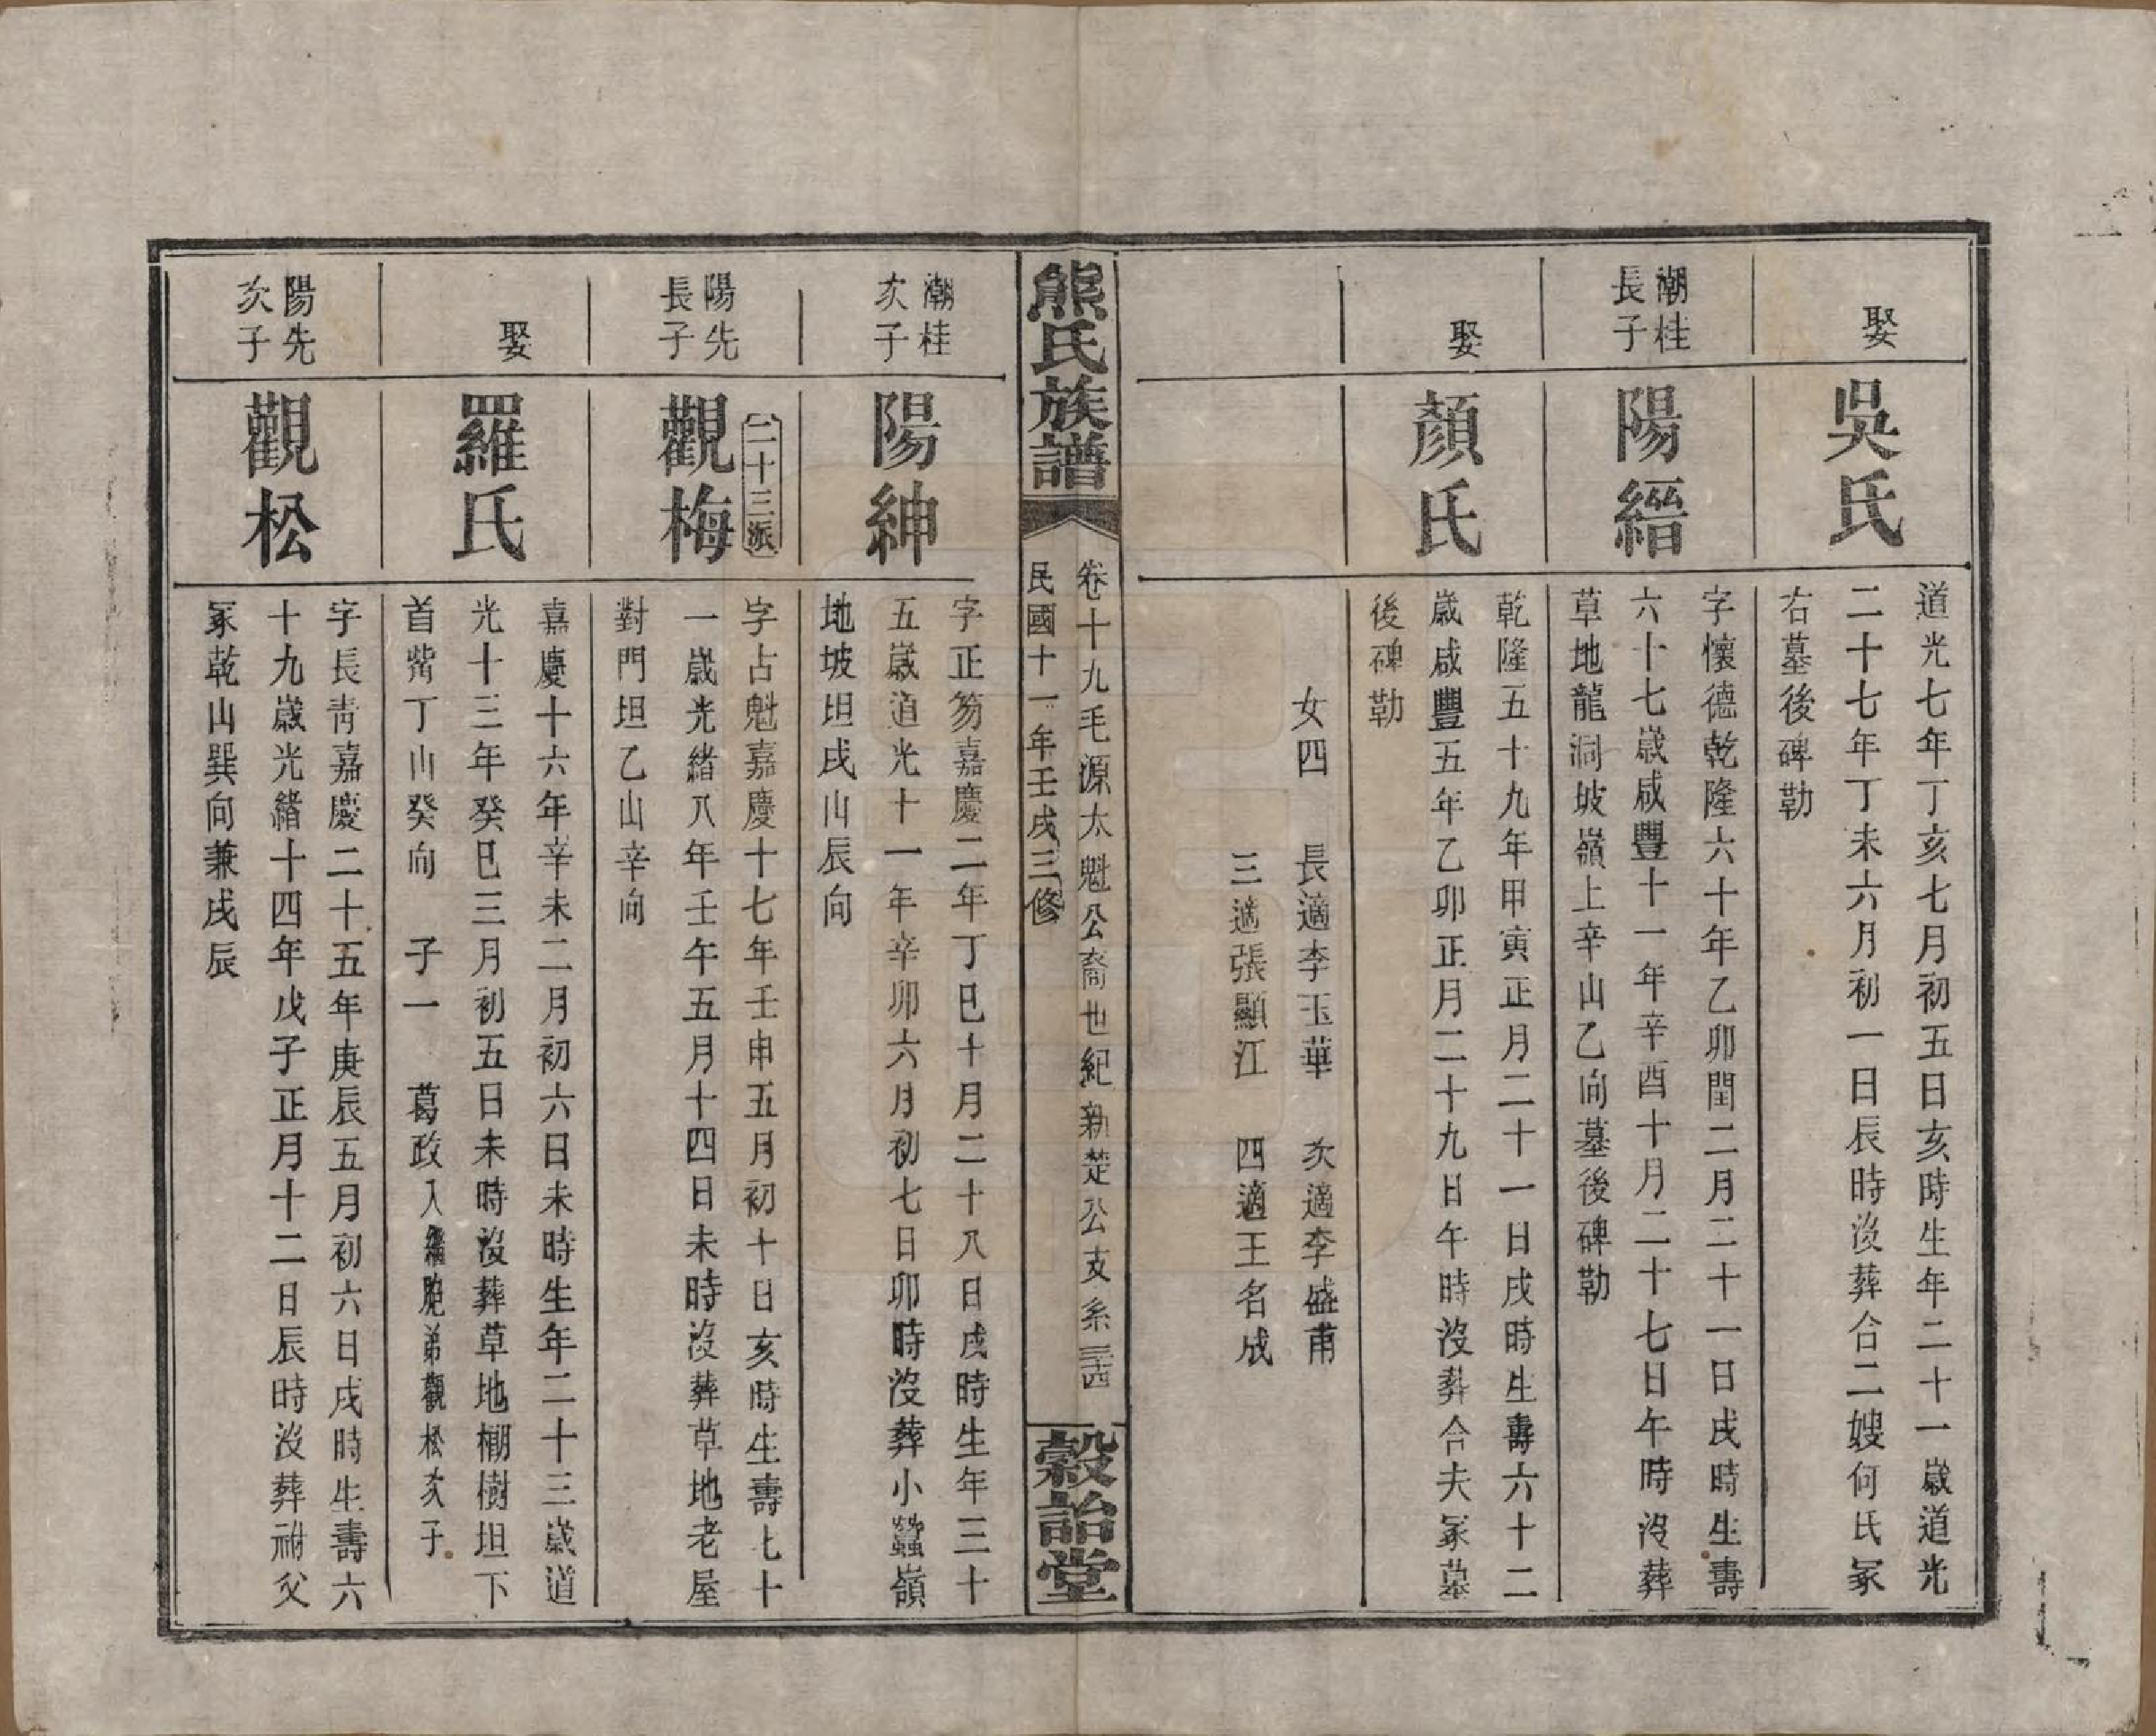 娶
吳氏
道光七年丁亥七月初五日亥時生年二十一歲道光
二十七年丁未六月初一日辰時沒葬合二嫂何氏冢
右墓後碑勒
潮桂
長子
陽縉
字懷德乾隆六十年乙卯閏二月二十一日戌時生壽
六十七歲咸豐十一年辛酉十月二十七日午時沒葬
草地龍洞坡嶺上辛山乙向墓後碑勒
娶
顏氏
乾隆五十九年甲寅正月二十一日戌時生壽六十二
歲咸豐五年乙卯正月二十九日午時沒葬合夫冢墓
後碑勒
女四 長適李玉華 次適李盛甫
三適張顯江 四適王名成
熊氏族譜
卷十九毛源太魁公裔世紀新楚公支系三十四
民國十一年壬戌三修
穀詒堂
潮桂
次子
陽紳
字正笏嘉慶二年丁巳十月二十八日戌時生年三十
五歲道光十一年辛卯六月初七日卯時沒葬小蠶嶺
地坡坦戌山辰向
陽先
長子
二十三派
觀梅
字占魁嘉慶十七年壬申五月初十日亥時生壽七十
一歲光緒八年壬午五月十四日未時沒葬草地老屋
對門坦乙山辛向
娶
羅氏
嘉慶十六年辛未二月初六日未時生年二十三歲道
光十三年癸巳三月初五日未時沒葬草地棚樹坦下
首嘴丁山癸向 子一 葛政入繼胞弟觀松次子
陽先
次子
觀松
字長青嘉慶二十五年庚辰五月初六日戌時生壽六
十九歲光緒十四年戊子正月十二日辰時沒葬祔父
冢乾山巽向兼戌辰